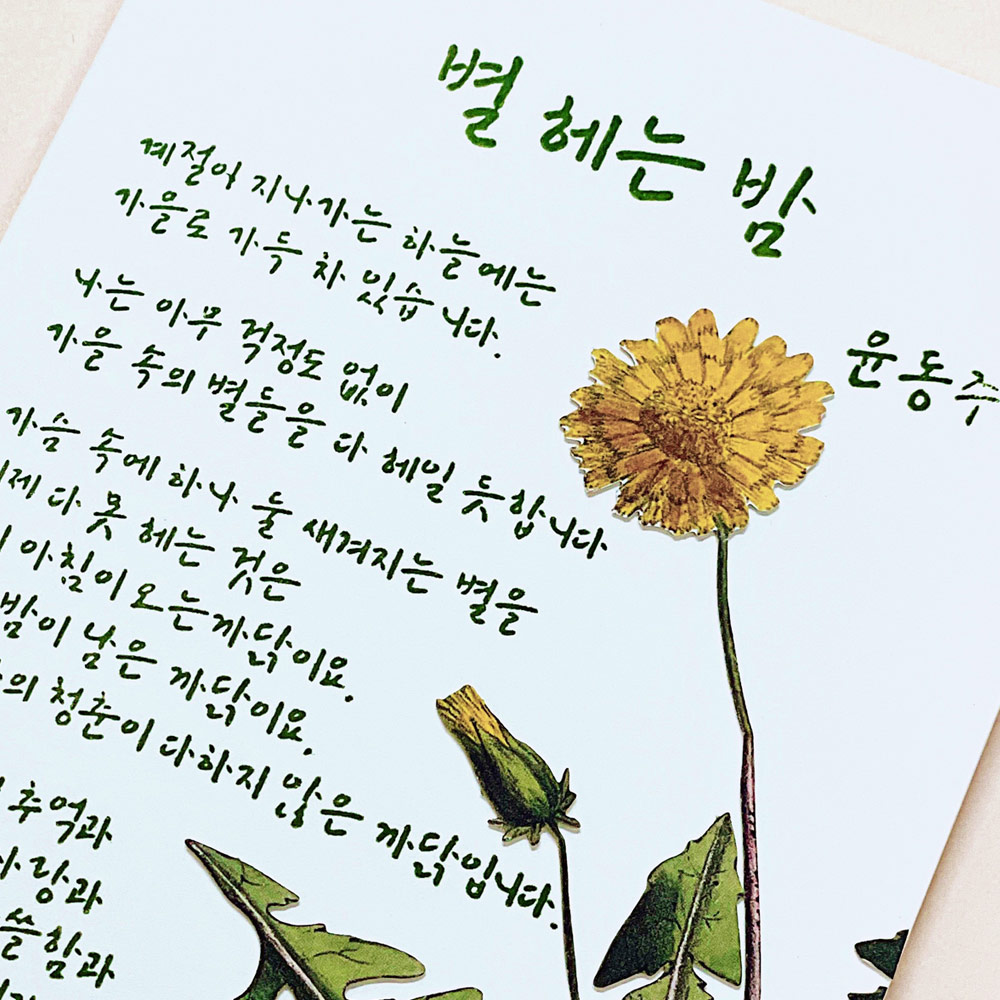 별 헤는 밤
윤동주
계절이 지나가는 하늘에는
가을로 가득 차 있습니다.
나는 아무 걱정도 없이
가을 속의 별들을 다 헤일 듯합니다
가슴 속에 하나 둘 새겨지는 별을
제 다 못 헤는 것은
아침이 오는 까닭이요,
밤이 남은 까닭이요,
의 청춘이 다하지 않은 까닭입니다.
추억과
사랑과
쓸함과